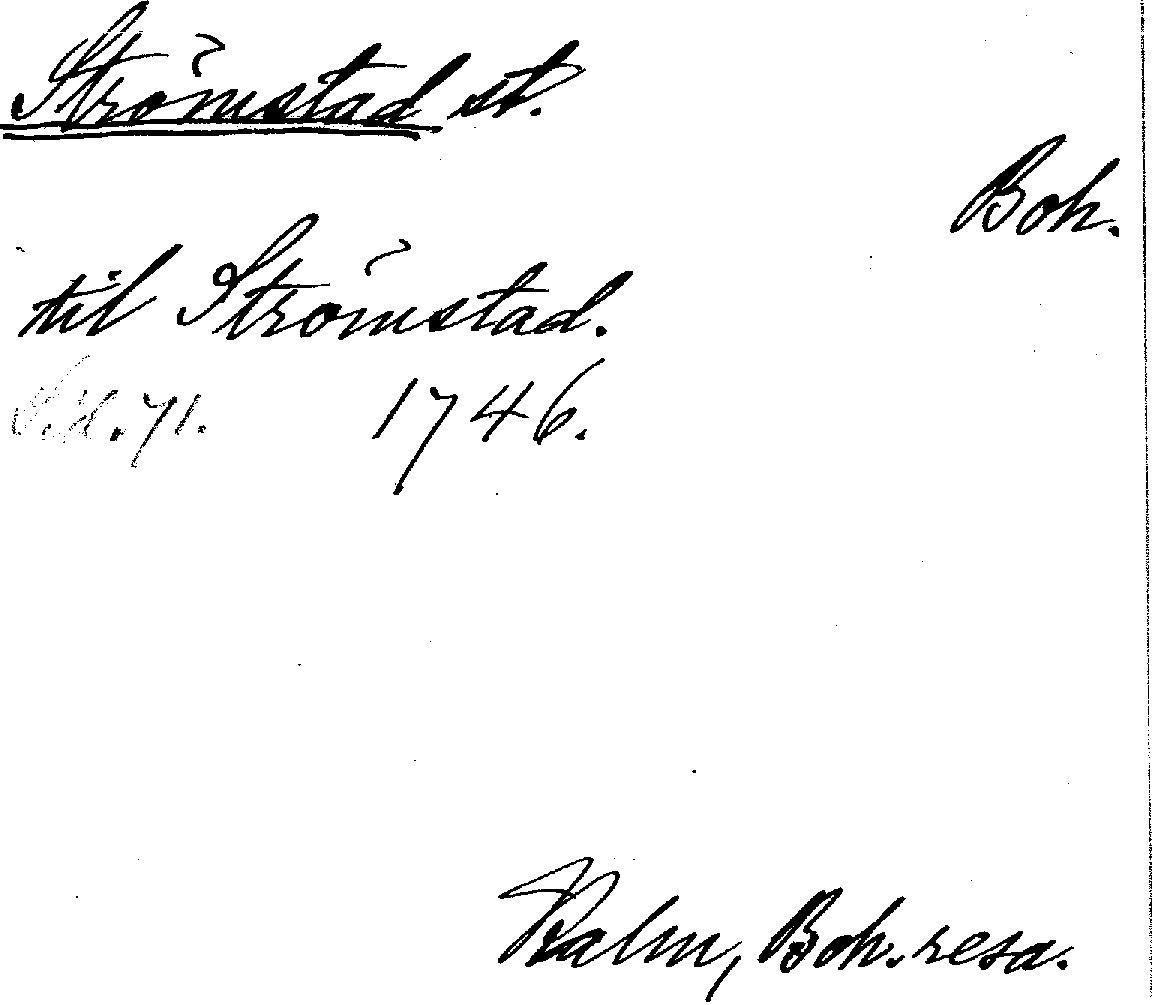 Strömstad st.
Boh.
til Strömstad.
71. 1746.
Kalm, Boh. resa.